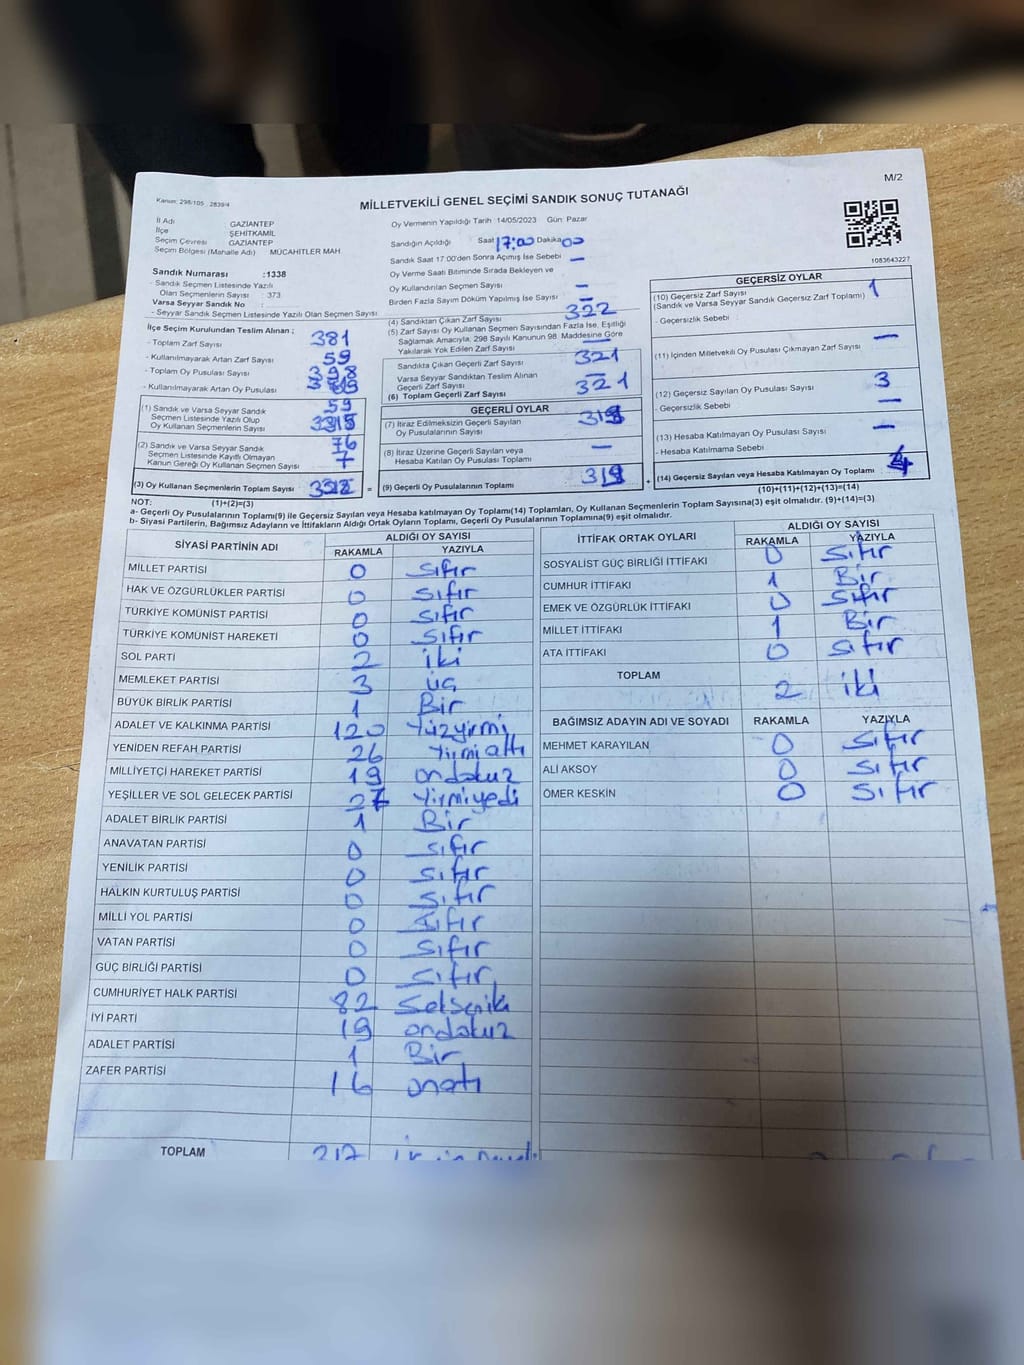 M/2
Kanun: 298/105 , 2839/4
MİLLETVEKİLİ GENEL SEÇİMİ SANDIK SONUÇ TUTANAĞI
1083643227
İl Adı : GAZİANTEP
İlçe : ŞEHİTKAMİL
Seçim Çevresi : GAZİANTEP
Seçim Bölgesi (Mahalle Adı) : MÜCAHİTLER MAH
Sandık Numarası :1338
- Sandık Seçmen Listesinde Yazılı
Olan Seçmenlerin Sayısı : 373
Varsa Seyyar Sandık No :
- Seyyar Sandık Seçmen Listesinde Yazılı Olan Seçmen Sayısı
İlçe Seçim Kurulundan Teslim Alınan ;
- Toplam Zarf Sayısı 381
- Kullanılmayarak Artan Zarf Sayısı 59
- Toplam Oy Pusulası Sayısı 398
- Kullanılmayarak Artan Oy Pusulası
59
(1) Sandık ve Varsa Seyyar Sandık
Seçmen Listesinde Yazılı Olup
Oy Kullanan Seçmenlerin Sayısı
76
(2) Sandık ve Varsa Seyyar Sandık
Seçmen Listesinde Kayıtlı Olmayan
Kanun Gereği Oy Kullanan Seçmen Sayısı 7
(3) Oy Kullanan Seçmenlerin Toplam Sayısı =
(1)+(2)=(3)
Oy Vermenin Yapıldığı Tarih :14/05/2023 Gün: Pazar
Sandığın Açıldığı Saat 17:00 Dakika 00
Sandık Saat 17:00'den Sonra Açılmış İse Sebebi –
Oy Verme Saati Bitiminde Sırada Bekleyen ve
Oy Kullandırılan Seçmen Sayısı –
Birden Fazla Sayım Döküm Yapılmış İse Sayısı –
(4) Sandıktan Çıkan Zarf Sayısı 322
(5) Zarf Sayısı Oy Kullanan Seçmen Sayısından Fazla İse, Eşitliği
Sağlamak Amacıyla, 298 Sayılı Kanunun 98. Maddesine Göre
Yakılarak Yok Edilen Zarf Sayısı –
Sandıkta Çıkan Geçerli Zarf Sayısı 321
Varsa Seyyar Sandıktan Teslim Alınan
Geçerli Zarf Sayısı
(6) Toplam Geçerli Zarf Sayısı 321
GEÇERLİ OYLAR
(7) İtiraz Edilmeksizin Geçerli Sayılan
Oy Pusulalarının Sayısı
(8) İtiraz Üzerine Geçerli Sayılan veya
Hesaba Katılan Oy Pusulası Toplamı –
(9) Geçerli Oy Pusulalarının Toplamı +
GEÇERSİZ OYLAR
(10) Geçersiz Zarf Sayısı 1
(Sandık ve Varsa Seyyar Sandık Geçersiz Zarf Toplamı)
- Geçersizlik Sebebi
(11) İçinden Milletvekili Oy Pusulası Çıkmayan Zarf Sayısı –
(12) Geçersiz Sayılan Oy Pusulası Sayısı 3
- Geçersizlik Sebebi –
(13) Hesaba Katılmayan Oy Pusulası Sayısı –
- Hesaba Katılmama Sebebi
(14) Geçersiz Sayılan veya Hesaba Katılmayan Oy Toplamı 4
(10)+(11)+(12)+(13)=(14)
NOT:
a- Geçerli Oy Pusulalarının Toplamı(9) ile Geçersiz Sayılan veya Hesaba katılmayan Oy Toplamı(14) Toplamları, Oy Kullanan Seçmenlerin Toplam Sayısına(3) eşit olmalıdır. (9)+(14)=(3)
b- Siyasi Partilerin, Bağımsız Adayların ve İttifakların Aldığı Ortak Oyların Toplamı, Geçerli Oy Pusulalarının Toplamına(9) eşit olmalıdır.
SİYASİ PARTİNİN ADI ALDIĞI OY SAYISI
RAKAMLA YAZIYLA
MİLLET PARTİSİ 0 sıfır
HAK VE ÖZGÜRLÜKLER PARTİSİ 0 sıfır
TÜRKİYE KOMÜNİST PARTİSİ 0 sıfır
TÜRKİYE KOMÜNİST HAREKETİ 0 sıfır
SOL PARTİ 2 iki
MEMLEKET PARTİSİ 3 üç
BÜYÜK BİRLİK PARTİSİ 1 Bir
ADALET VE KALKINMA PARTİSİ 120 Yüzyirmi
YENİDEN REFAH PARTİSİ 26 Yirmi altı
MİLLİYETÇİ HAREKET PARTİSİ 19 ondokuz
YEŞİLLER VE SOL GELECEK PARTİSİ 27 Yirmiyedi
ADALET BİRLİK PARTİSİ 1 Bir
ANAVATAN PARTİSİ 0 sıfır
YENİLİK PARTİSİ 0 sıfır
HALKIN KURTULUŞ PARTİSİ 0 sıfır
MİLLİ YOL PARTİSİ 0 sıfır
VATAN PARTİSİ 0 sıfır
GÜÇ BİRLİĞİ PARTİSİ 0 sıfır
CUMHURİYET HALK PARTİSİ 82 Sekseniki
İYİ PARTİ 19 ondokuz
ADALET PARTİSİ 1 Bir
ZAFER PARTİSİ 16 onaltı
TOPLAM 317
İTTİFAK ORTAK OYLARI ALDIĞI OY SAYISI
RAKAMLA YAZIYLA
SOSYALİST GÜÇ BİRLİĞİ İTTİFAKI 0 sıfır
CUMHUR İTTİFAKI 1 Bir
EMEK VE ÖZGÜRLÜK İTTİFAKI 0 sıfır
MİLLET İTTİFAKI 1 Bir
ATA İTTİFAKI 0 sıfır
TOPLAM 2 iki
BAĞIMSIZ ADAYIN ADI VE SOYADI RAKAMLA YAZIYLA
MEHMET KARAYILAN 0 sıfır
ALİ AKSOY 0 sıfır
ÖMER KESKİN 0 sıfır